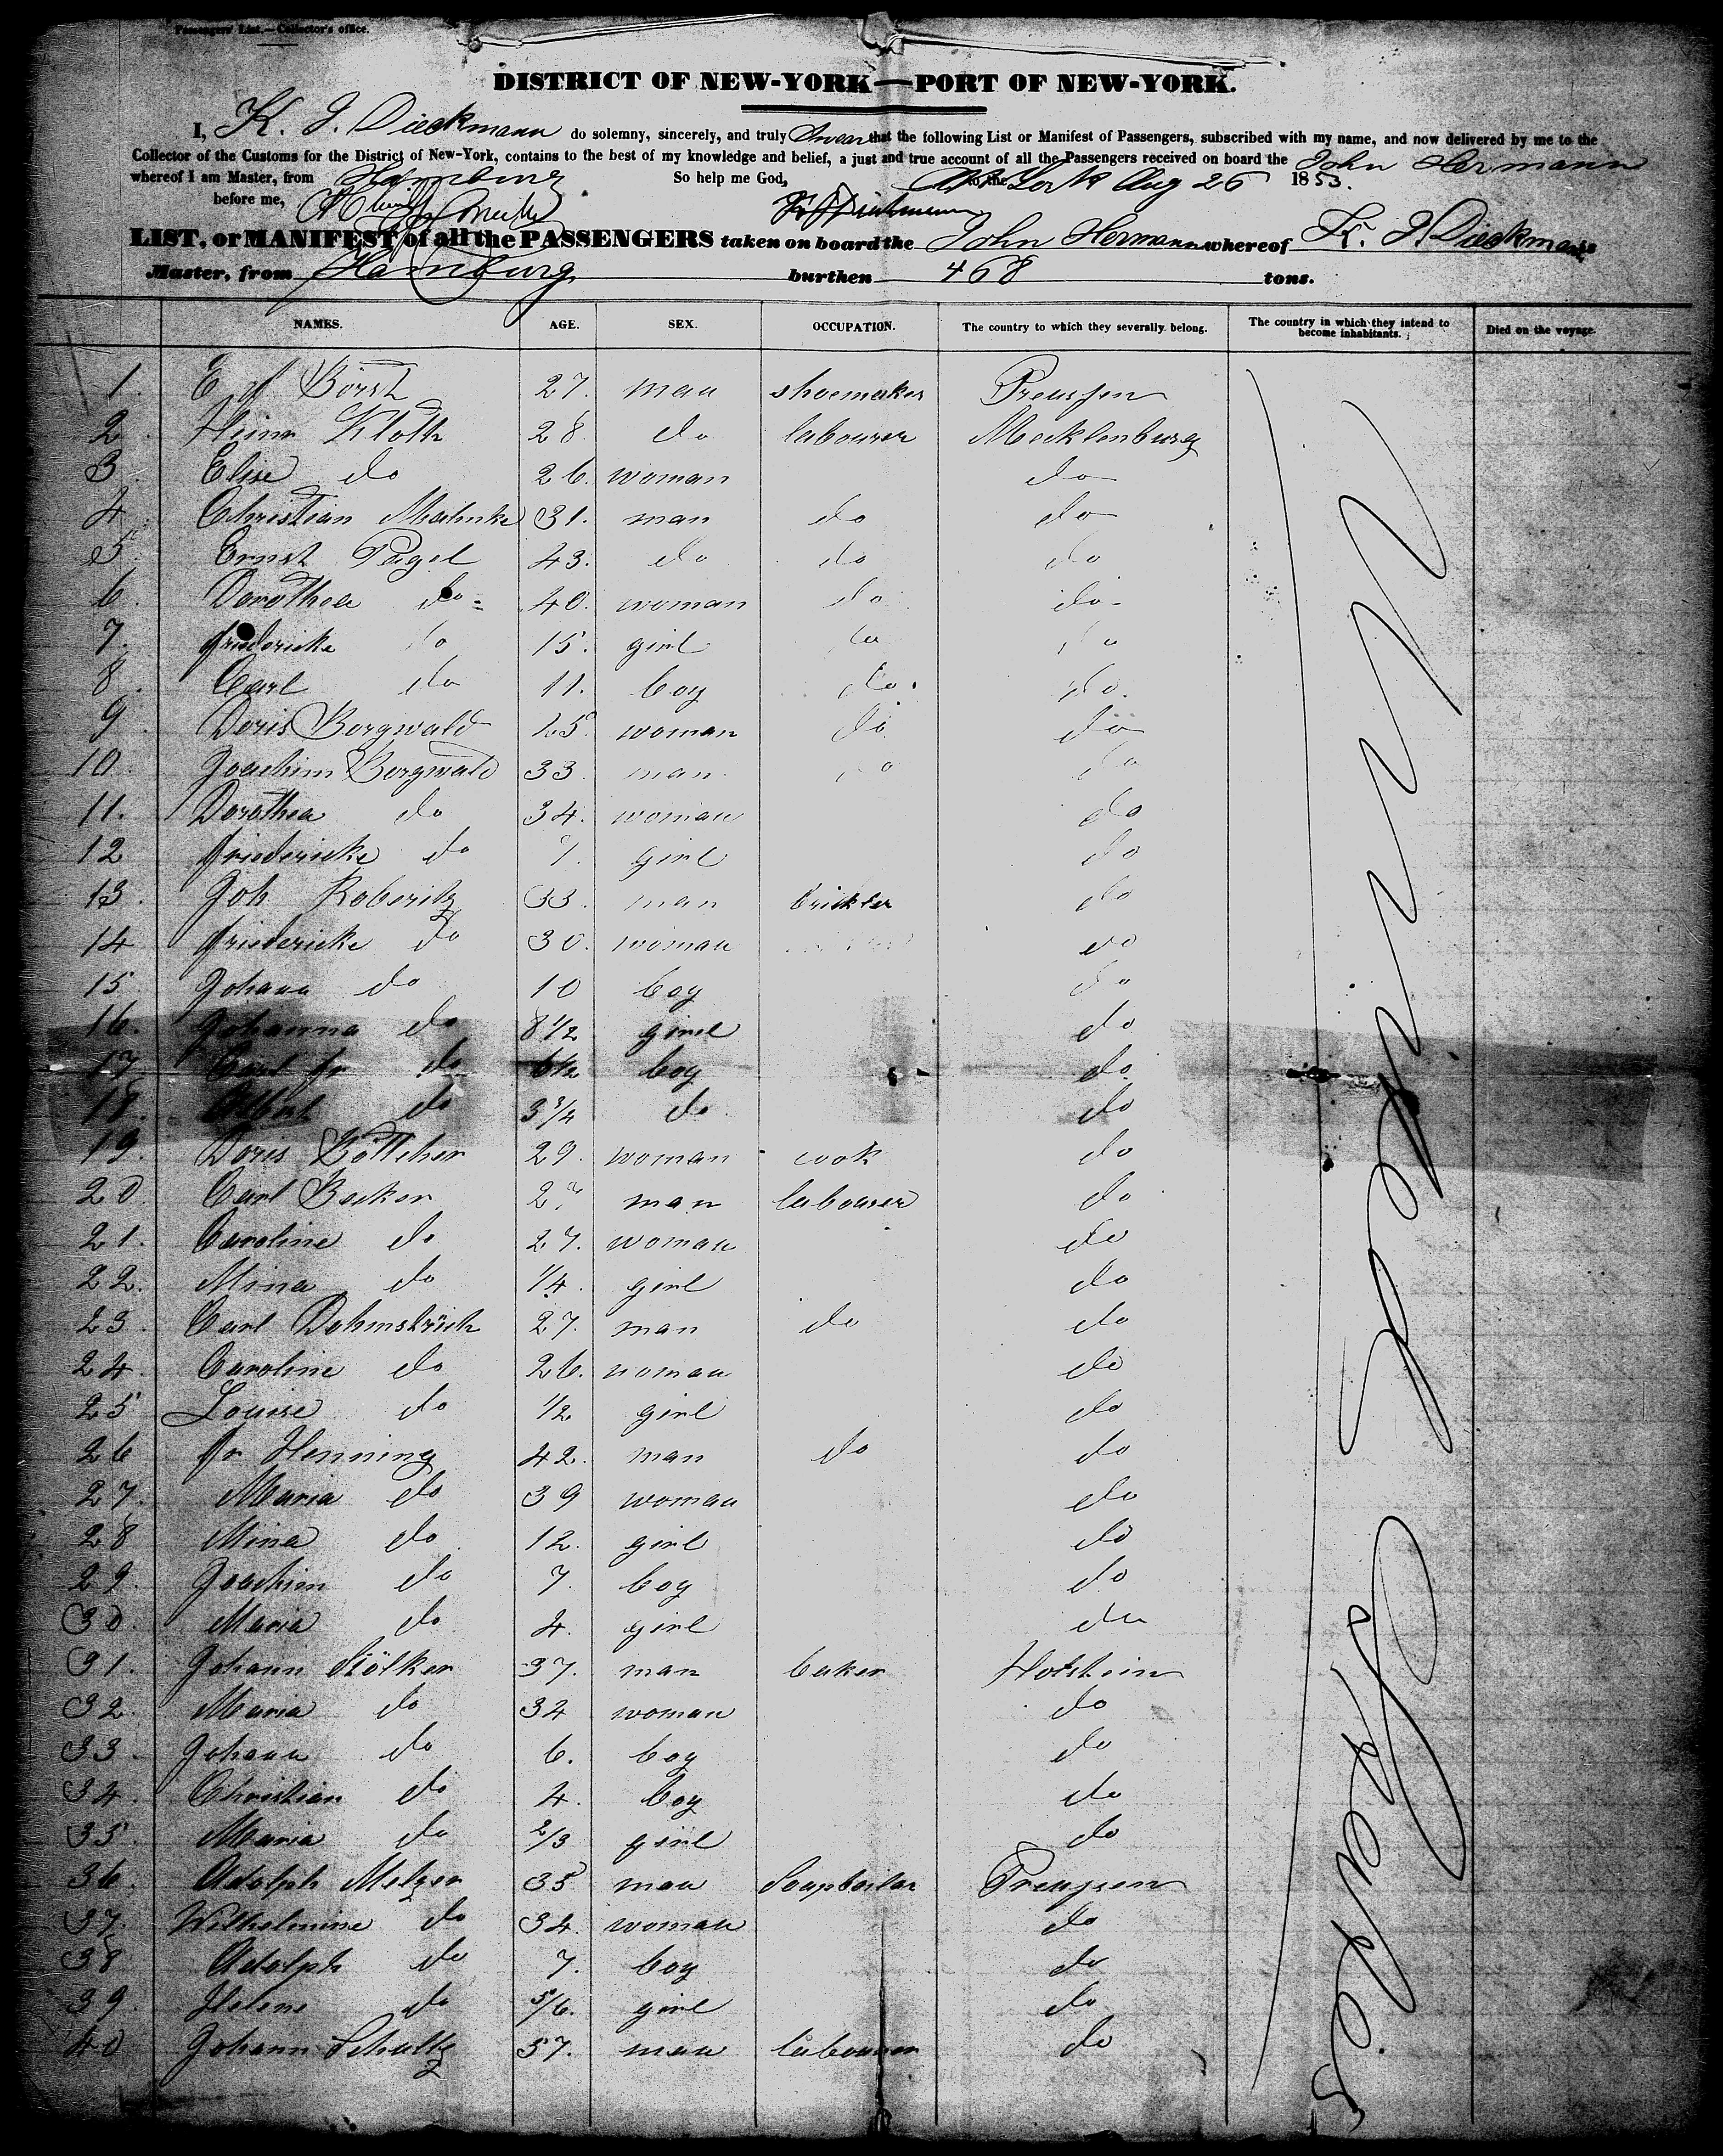 Passengers' List.—Collector's office.
DISTRICT OF NEW-YORK—PORT OF NEW-YORK.
I, K. J. Dieckmann do solemny, sincerely, and truly Swear that the following List or Manifest of Passengers, subscribed with my name, and now delivered by me to the
Collector of the Customs for the District of New-York, contains to the best of my knowledge and belief, a just and true account of all the Passengers received on board the John Hermann
whereof I am Master, from Hamburg So help me God, York Aug 26 1853.
before me,
LIST, or MANIFEST of all the PASSENGERS taken on board the John Hermann whereof K. J. Dieckmann
Master, from Hamburg burthen 468 tons.
NAMES. AGE. SEX. OCCUPATION. The country to which they severally belong. The country in which they intend to become inhabitants. Died on the voyage.
1. Börst 27. man shoemaker Preussen
2. Heinr Kloth 28. do labourer Mecklenburg
3. Elise do 26. woman do
4. Christian Mahnke 31. man do do
5. Ernst Pagel 43. do do do
6. Dorothea do 40. woman do do
7. friedericke do 15. girl do do
8. Carl do 11. boy do. do.
9 Doris Borgwald 25. woman do do
10. Joachim Borgwald 33. man do do
11. Dorothea do 34. woman do
12 friedericke do girl do
13. Joh Roberitz 33. man do
14 friedericke do 30. woman do
15 Johann do 10 boy do
16. Johanna do 8 1/2 girl do
17 Carl fr do 6 1/2 boy do
18. Albert do 3 3/4 do do
19. Doris Böttcher 29. woman cook do
20. Carl Becker man labourer do
21. Caroline do 27. woman do
22. Mina do 1/4. girl do
23. Carl Dohmströich 27. man do do
24. Caroline do 26. woman do
25 Louise do 1/2 girl do
26 fr Henning 42. man do do
27. Maria do 39 woman do
28 Mina do 12. girl do
29. Joachim do 7. boy do
30. Maria do 4. girl do
31. Johann Stölker 37. man baker Holstein
32. Maria do 34 woman do
33. Johann do 6. boy do
34. Christian do 4. boy do
35. Maria do 2/3 girl do
36. Adolph Melzer 35 man Soapboiler Preussen
37. Wilhelmine do 34. woman do
38 Adolph do 7. boy do
39. Helene do 5/6. girl do
40 Johann Schultz 57. man labourer do
United States